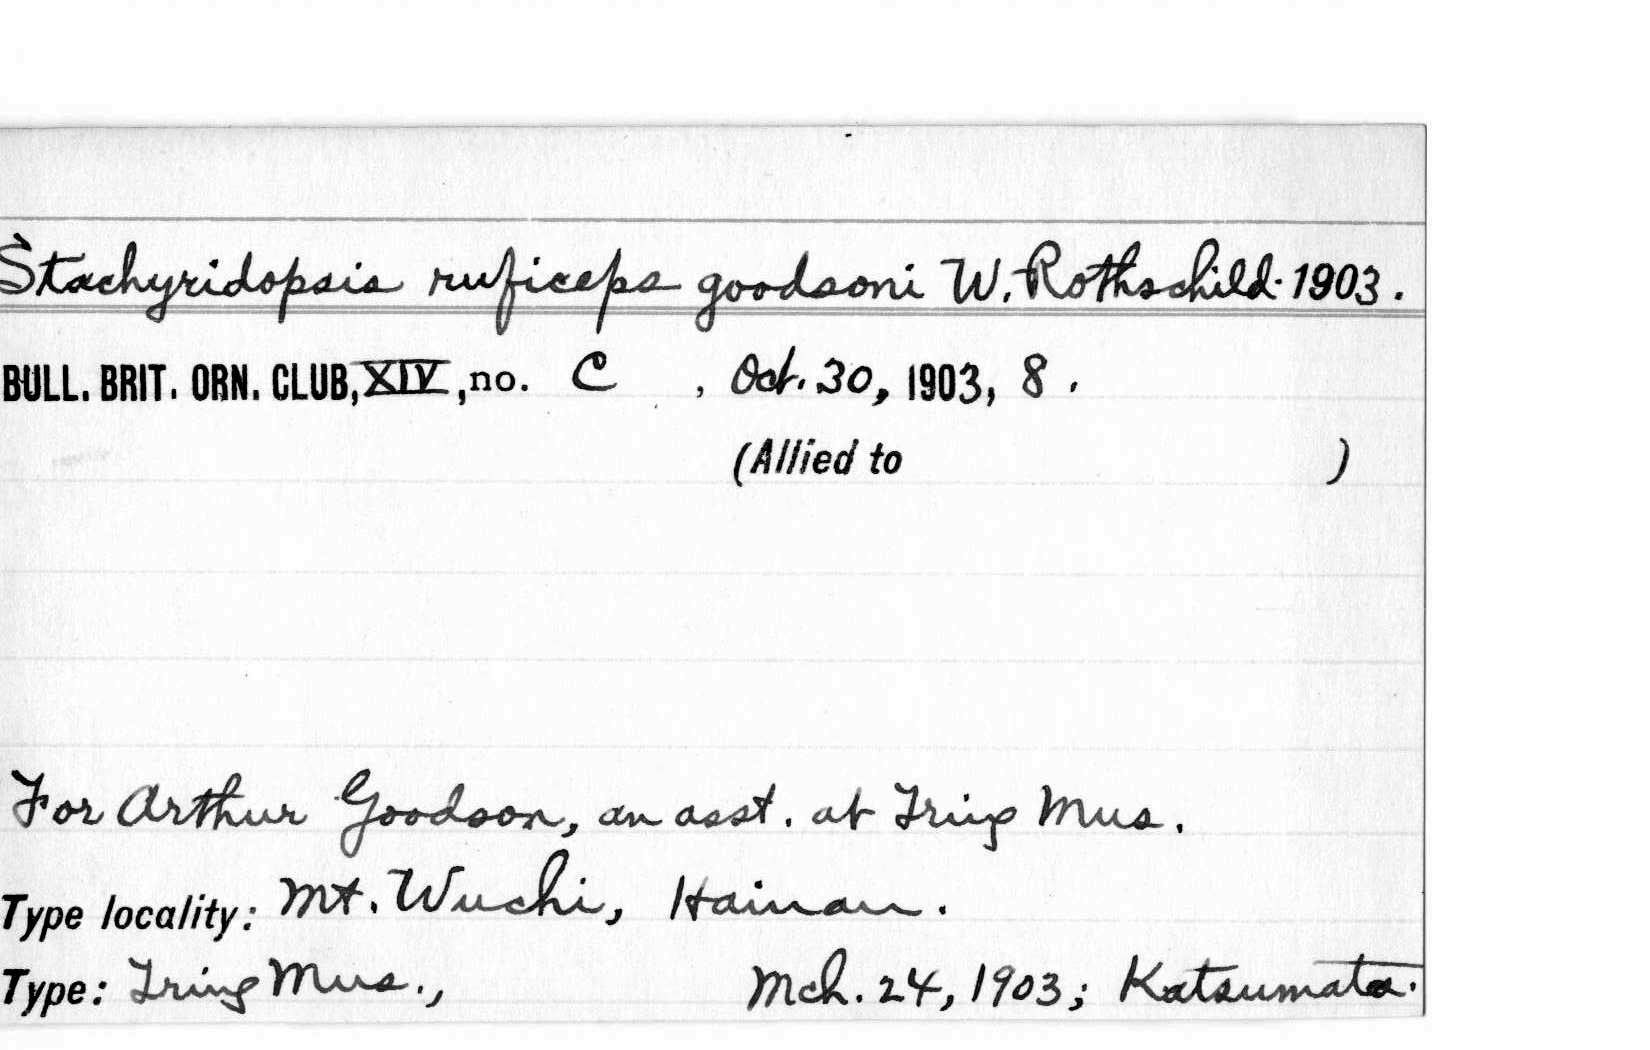 Stachyridopsis ruficeps goodsoni W. Rothschild. 1903.
BULL. BRIT. ORN. CLUB, XIV, no. C , Oct. 30, 1903, 8 .
(Allied to )
For Arthur Goodson, an asst. at Tring Mus.
Type locality: Mt. Wuchi, Hainan.
Type: Tring Mus., Mch. 24, 1903; Katsumata.